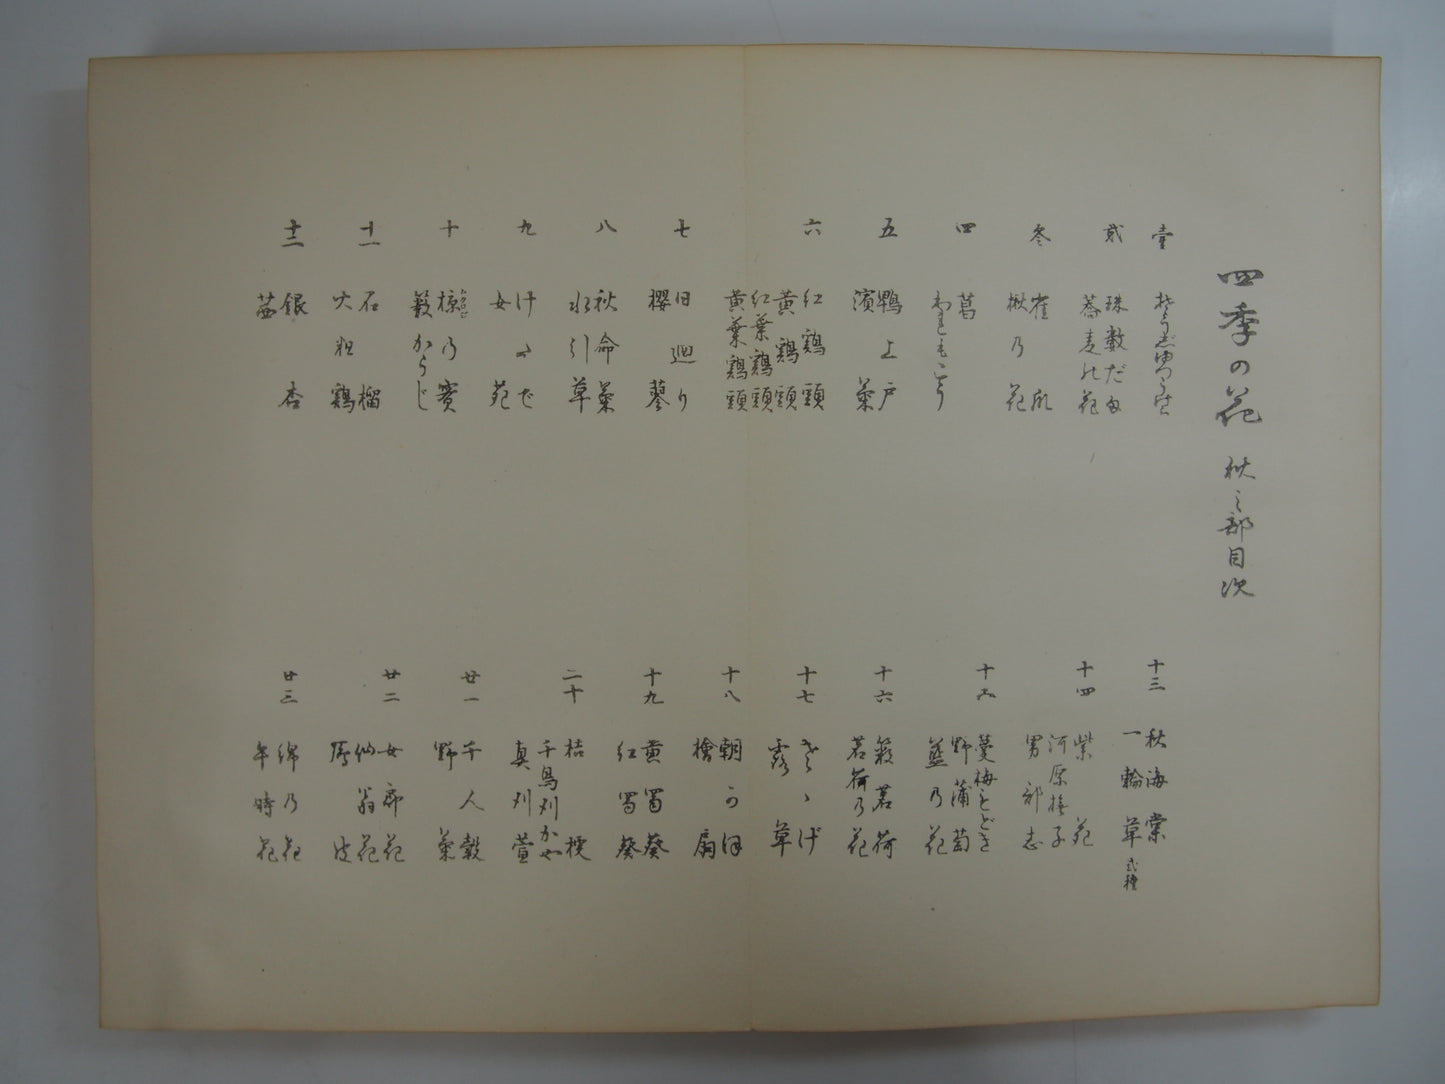 四季の花 秋之部目次
壹
貳 珠數だま
蕎麦の花
參
楸乃花
四 菖
われもこう
五 鴨上戸
濱菊
六 紅鶏頭
黄鶏頭
紅葉鶏頭
黄葉鶏頭
七 日廻り
櫻蓼
八 秋命菊
水引草
九
女
十 椋乃實
籔かうじ
十一 石榴
火粗鶏
十二 銀杏
茜
十三 秋海棠
一輪草 弐種
十四 紫苑
河原撫子
男郎志
十五 蔓梅もどき
野蒲萄
藍乃花
十六 籔茗荷
茗荷乃花
十七
露草
十八 朝かほ
檜扇
十九 黄蜀葵
紅蜀葵
二十 桔梗
千鳥刈かや
真刈萱
廿一 千人穀
野菊
廿二 女郎花
仙翁花
廿三 綿乃花
午時花